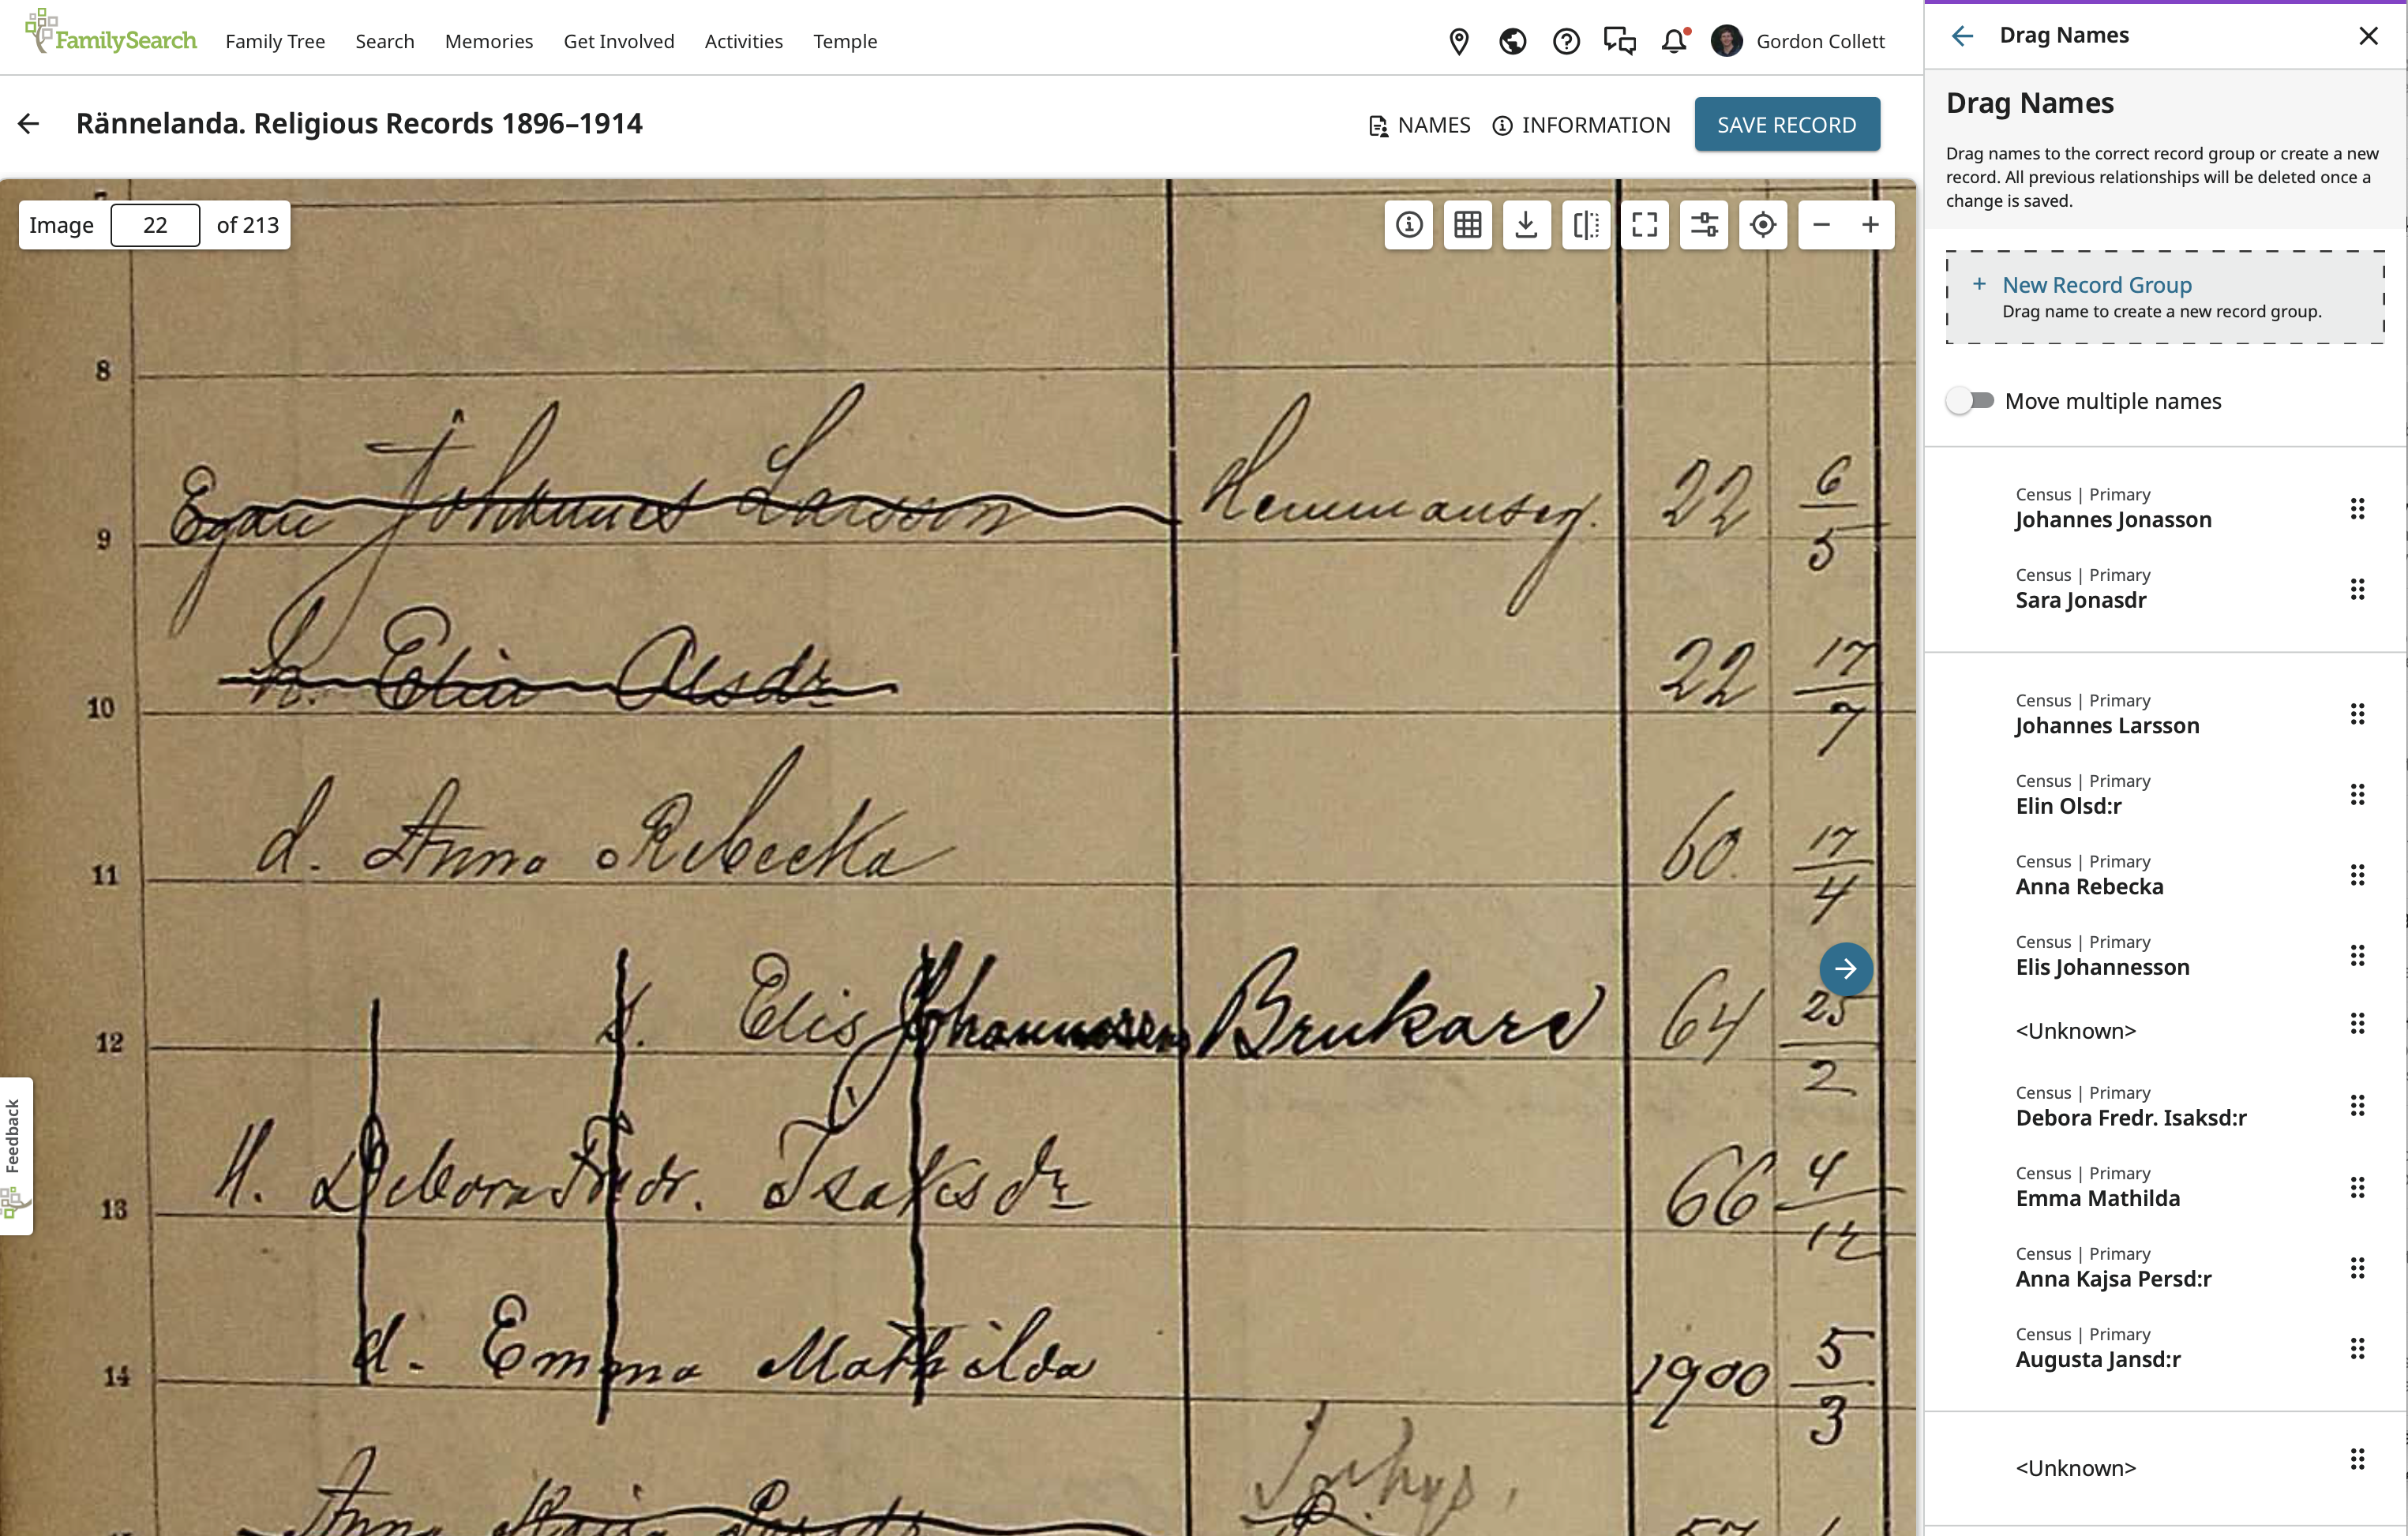 FamilySearch
Family Tree
Search
Memories
Get Involved
Activities
Temple
Gordon Collett
Rännelanda. Religious Records 1896–1914
NAMES
INFORMATION
SAVE RECORD
Image 22 of 213
8
Egaren Johannes Larsson Hemmanseg. 22 6/5
9
h. Elin Olsdr 22 17/7
10
d. Anna Rebecka 60. 17/4
11
S. Elis Johannesson Brukare 64 25/2
12
H. Debora Fredr. Isaksdr 66 4/12
13
d. Emma Mathilda 1900 5/3
14
Inhys.
Anna
Feedback
Drag Names
Drag Names
Drag names to the correct record group or create a new
record. All previous relationships will be deleted once a
change is saved.
+ New Record Group
Drag name to create a new record group.
Move multiple names
Census | Primary
Johannes Jonasson
Census | Primary
Sara Jonasdr
Census | Primary
Johannes Larsson
Census | Primary
Elin Olsd:r
Census | Primary
Anna Rebecka
Census | Primary
Elis Johannesson
<Unknown>
Census | Primary
Debora Fredr. Isaksd:r
Census | Primary
Emma Mathilda
Census | Primary
Anna Kajsa Persd:r
Census | Primary
Augusta Jansd:r
<Unknown>